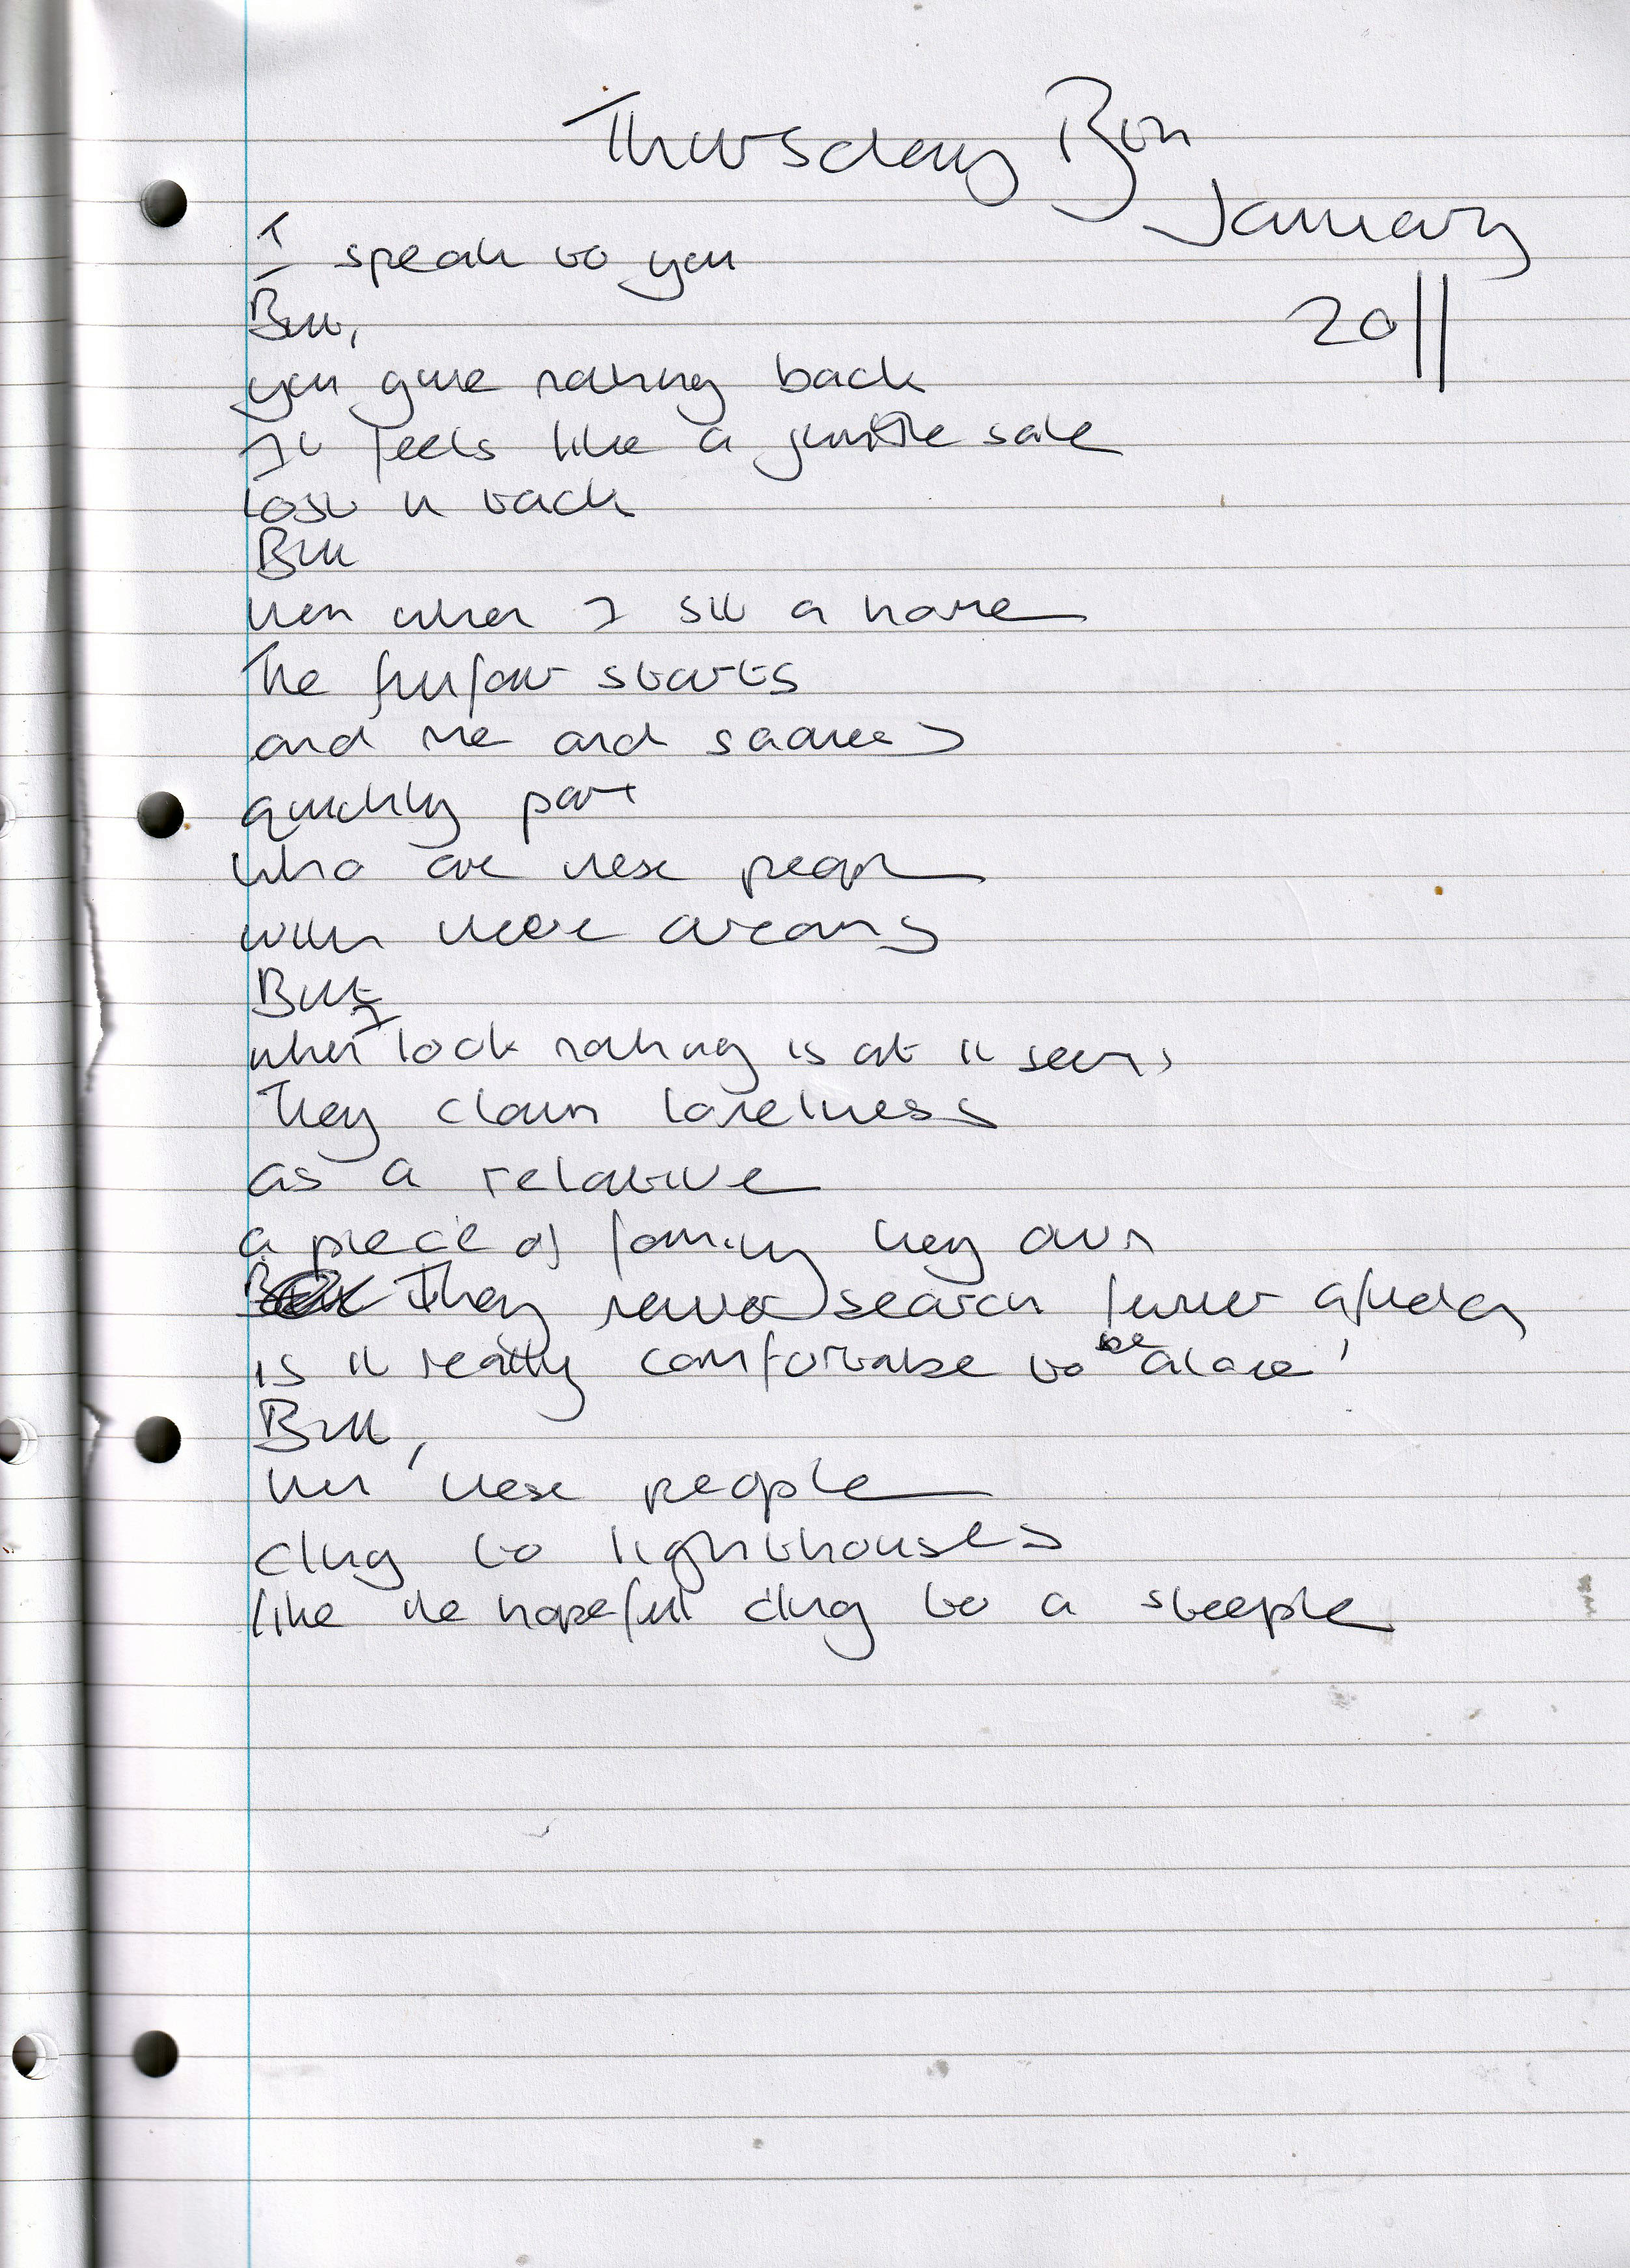 Thursday 13th
January
2011
I speak to you
But,
you give nothing back
It feels like a jumble sale
lost in
But
then when I sit a home
The funfair starts
and me and sadness
quickly part
who are these people
with there dreams
But
when I look nothing is at it seems
They claim loneliness
as a relative
a piece of family they own
They never search further afield
is it really comfortable to be alone
But,
then these people
cling to lighthouses
like the hopeful cling to a steeple